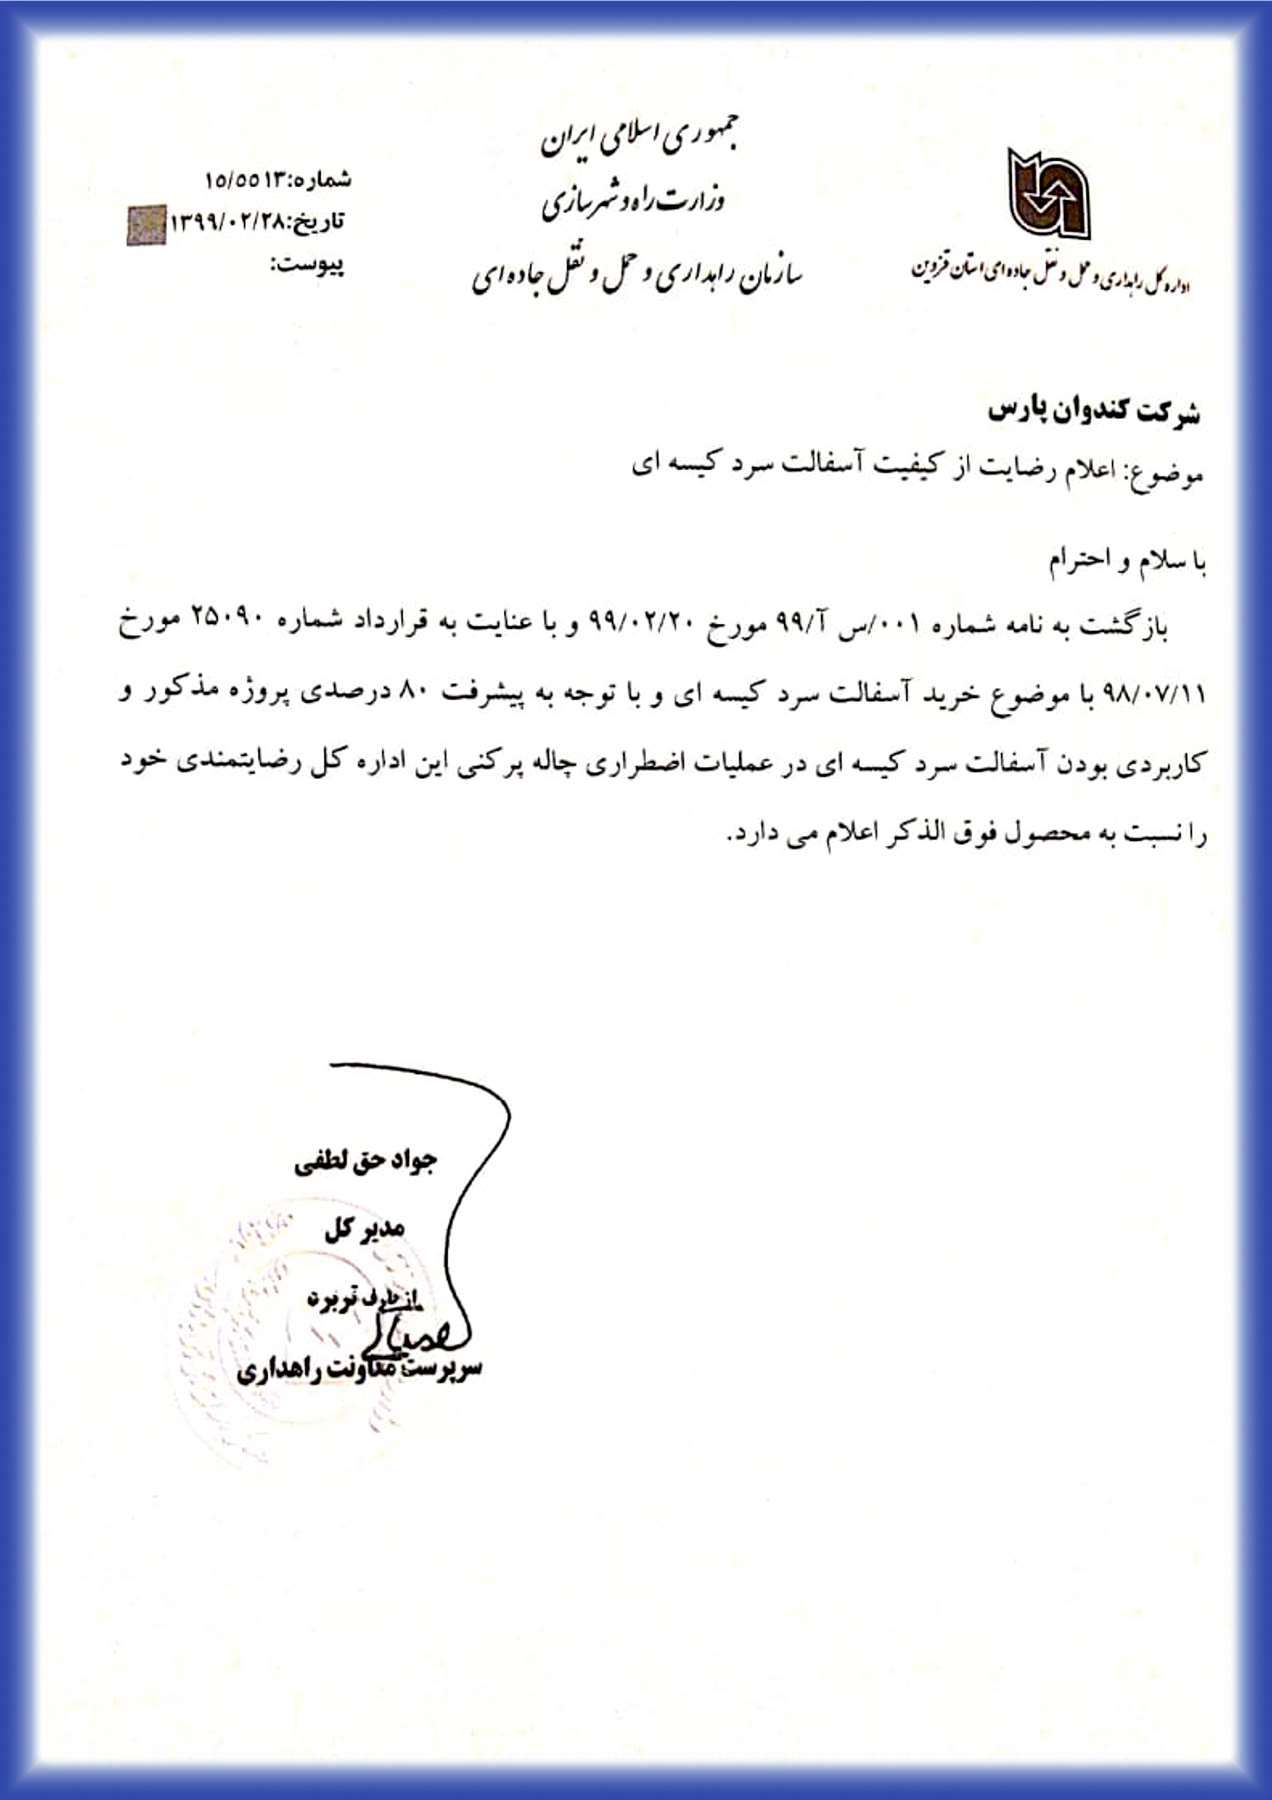 جمهوری اسلامی ایران
وزارت راه و شهرسازی
سازمان راهداری و حمل و نقل جاده‌ای
اداره کل راهداری و حمل و نقل جاده‌ای استان قزوین
شماره:۱۵/۵۵۱۳
تاریخ:۱۳۹۹/۰۲/۲۸
پیوست:
شرکت کندوان پارس
موضوع: اعلام رضایت از کیفیت آسفالت سرد کیسه ای
با سلام و احترام
بازگشت به نامه شماره ۰۰۱/س آ/۹۹ مورخ ۹۹/۰۲/۲۰ و با عنایت به قرارداد شماره ۲۵۰۹۰ مورخ
۹۸/۰۷/۱۱ با موضوع خرید آسفالت سرد کیسه ای و با توجه به پیشرفت ۸۰ درصدی پروژه مذکور و
کاربردی بودن آسفالت سرد کیسه ای در عملیات اضطراری چاله پرکنی این اداره کل رضایتمندی خود
را نسبت به محصول فوق الذکر اعلام می دارد.
جواد حق لطفی
مدیر کل
از طرف
سرپرست معاونت راهداری